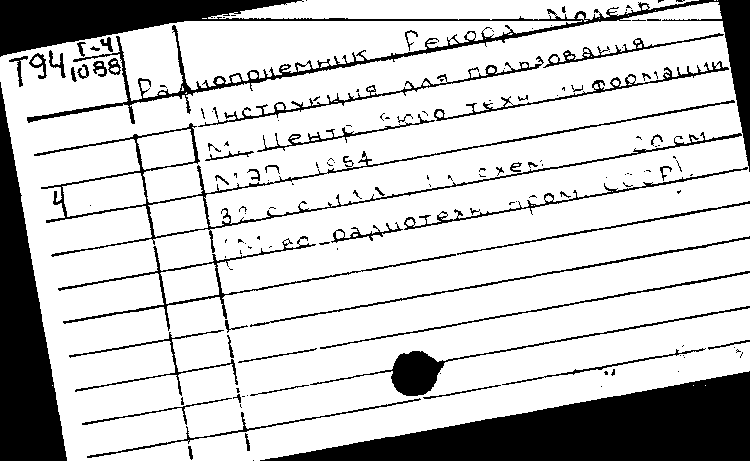 Т94 Г-4
1088
Радиоприемник "Рекорд". Модель-
Инструкция для пользования.
М., Центр. бюро техн. информации
МЭП, 1954
4
32 с. с илл., 1 л. схем. 20 см.
(М-во радиотехн. пром. СССР).